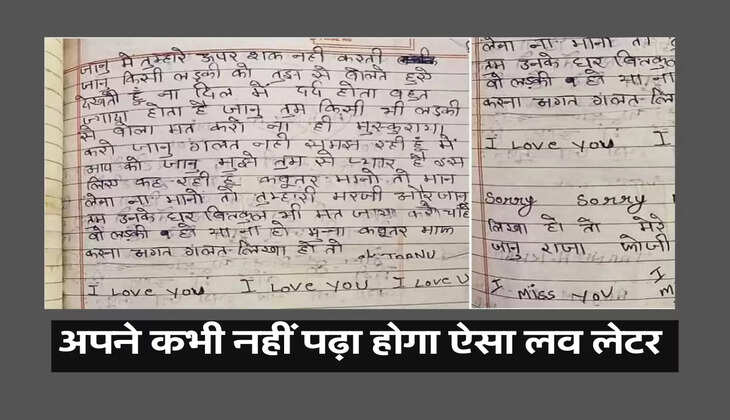 जानु में तुम्हारे ऊपर शक नही करती
जानु किसी लड़की को तुझ से बोलते हुऐ
देखती हूं ना दिल में दर्द होता बहुत
ज्यादा होता है जानु तुम किसी भी लड़की
से बोला मत करो ना ही मुस्कुराया
करो जानु गलत नही समझ रही हूं में
आप को जानु मुझे तुम से प्यार है इस
लिए कह रही हूं कबुतर मानो तो मान
लेना ना मानो तो तुम्हारी मरजी और जानु
तुम उनके घर बिलकुल भी मत जाया करो चाहे
वो लड़की व हो या ना हो मुन्ना कबुतर माफ
करना अगत गलत-लिखा हो तो
I Love you I Love you, I Love U
लेना ना मानो तो
तुम उनके घर बिलकुल
वो लड़की व हो या ना
करना अगत गलत-लि
I Love you I
Sorry Sorry
लिखा हो तो मेरे
जानु राजा फोजी
I
I miss you M
अपने कभी नहीं पढ़ा होगा ऐसा लव लेटर